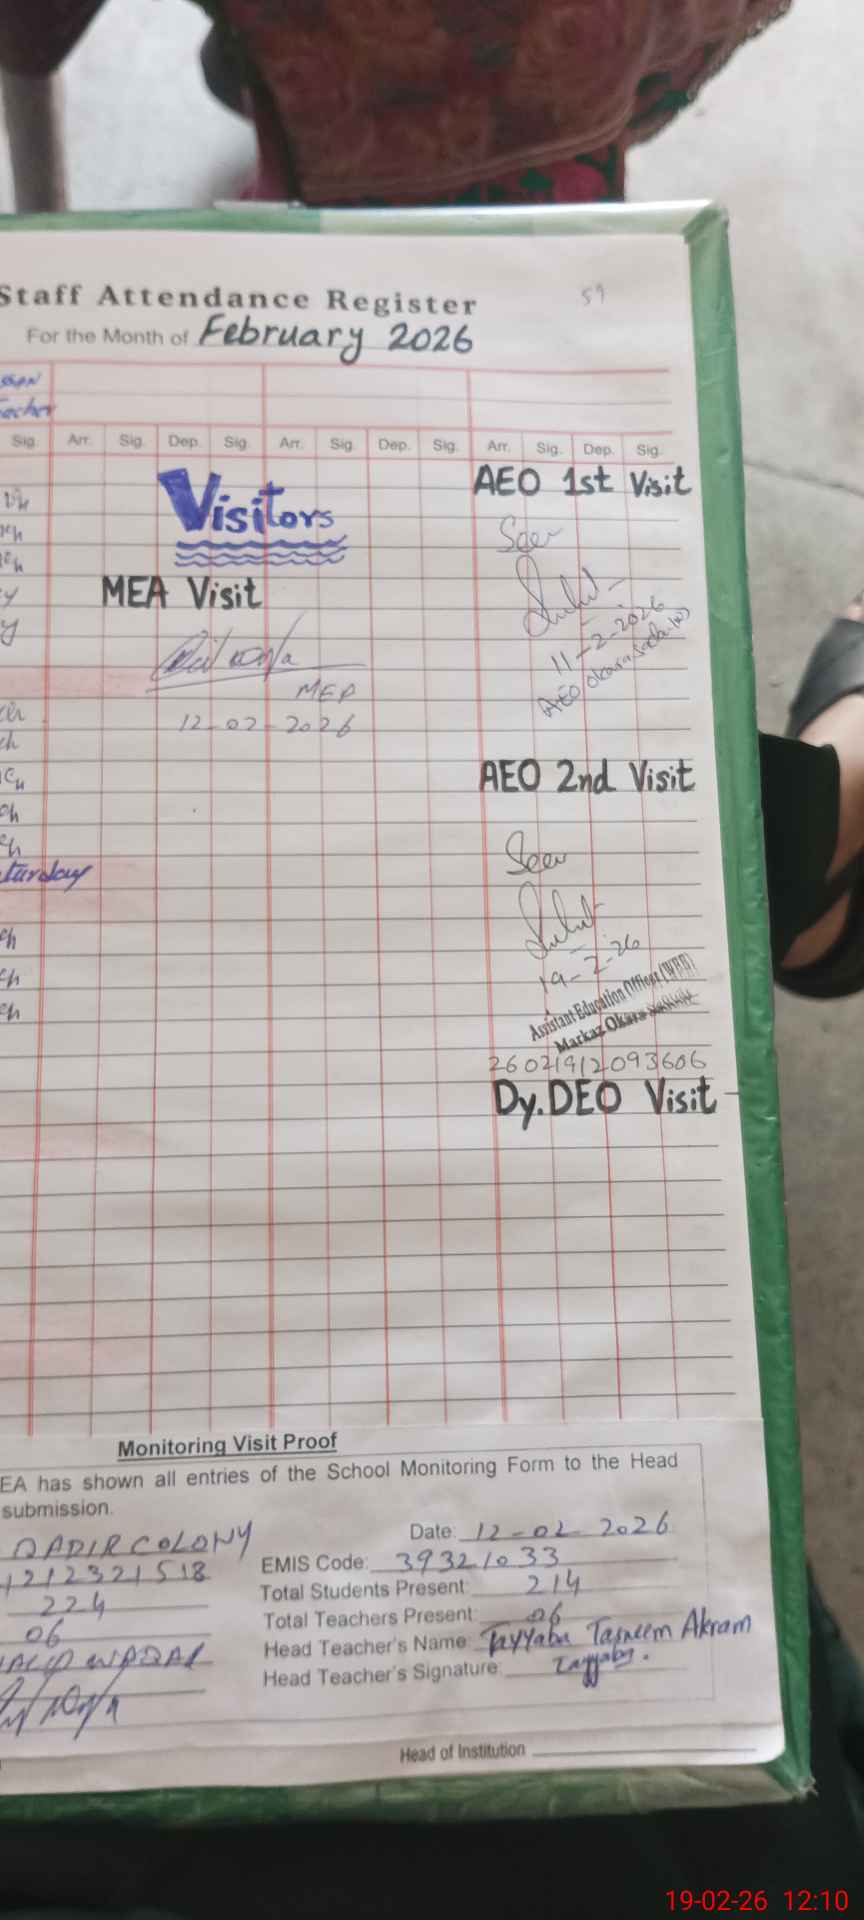 Staff Attendance Register
59
For the Month of February 2026
Sig. Arr. Sig. Dep. Sig. Arr. Sig. Dep. Sig. Arr. Sig. Dep. Sig.
Visitors
MEA Visit
12-02-2026
AEO 1st Visit
Seen
11-2-2026
AEO Okara
AEO 2nd Visit
Seen
19-2-26
Assistant Education Officer
Markaz Okara
26021912093606
Dy.DEO Visit
turday
Monitoring Visit Proof
EA has shown all entries of the School Monitoring Form to the Head
submission.
QADIR COLONY
Date: 12-02-2026
1212321518
EMIS Code: 39321033
224
Total Students Present: 214
06
Total Teachers Present: 06
Head Teacher's Name: Tayyaba Tasneem Akram
Head Teacher's Signature: Tayyaba.
Head of Institution
19-02-26 12:10